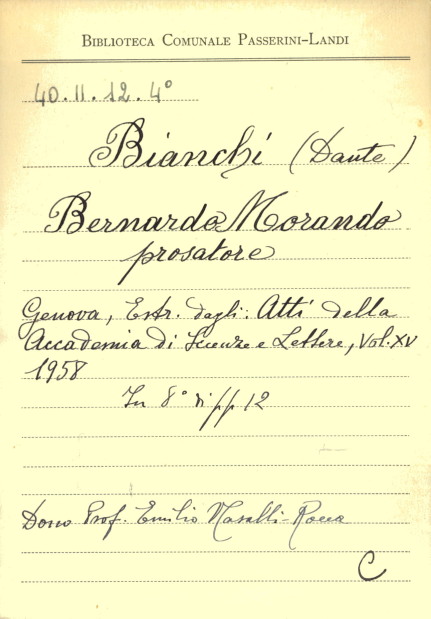 BIBLIOTECA COMUNALE PASSERINI-LANDI
40.II.12.4°
Bianchi (Dante)
Bernardo Morando
prosatore
Genova, Estr. dagli: Atti della
Accademia di Scienze e Lettere, Vol. XV
1958
In 8° di pp 12
Dono Prof. Emilio Nasalli-Rocca
C